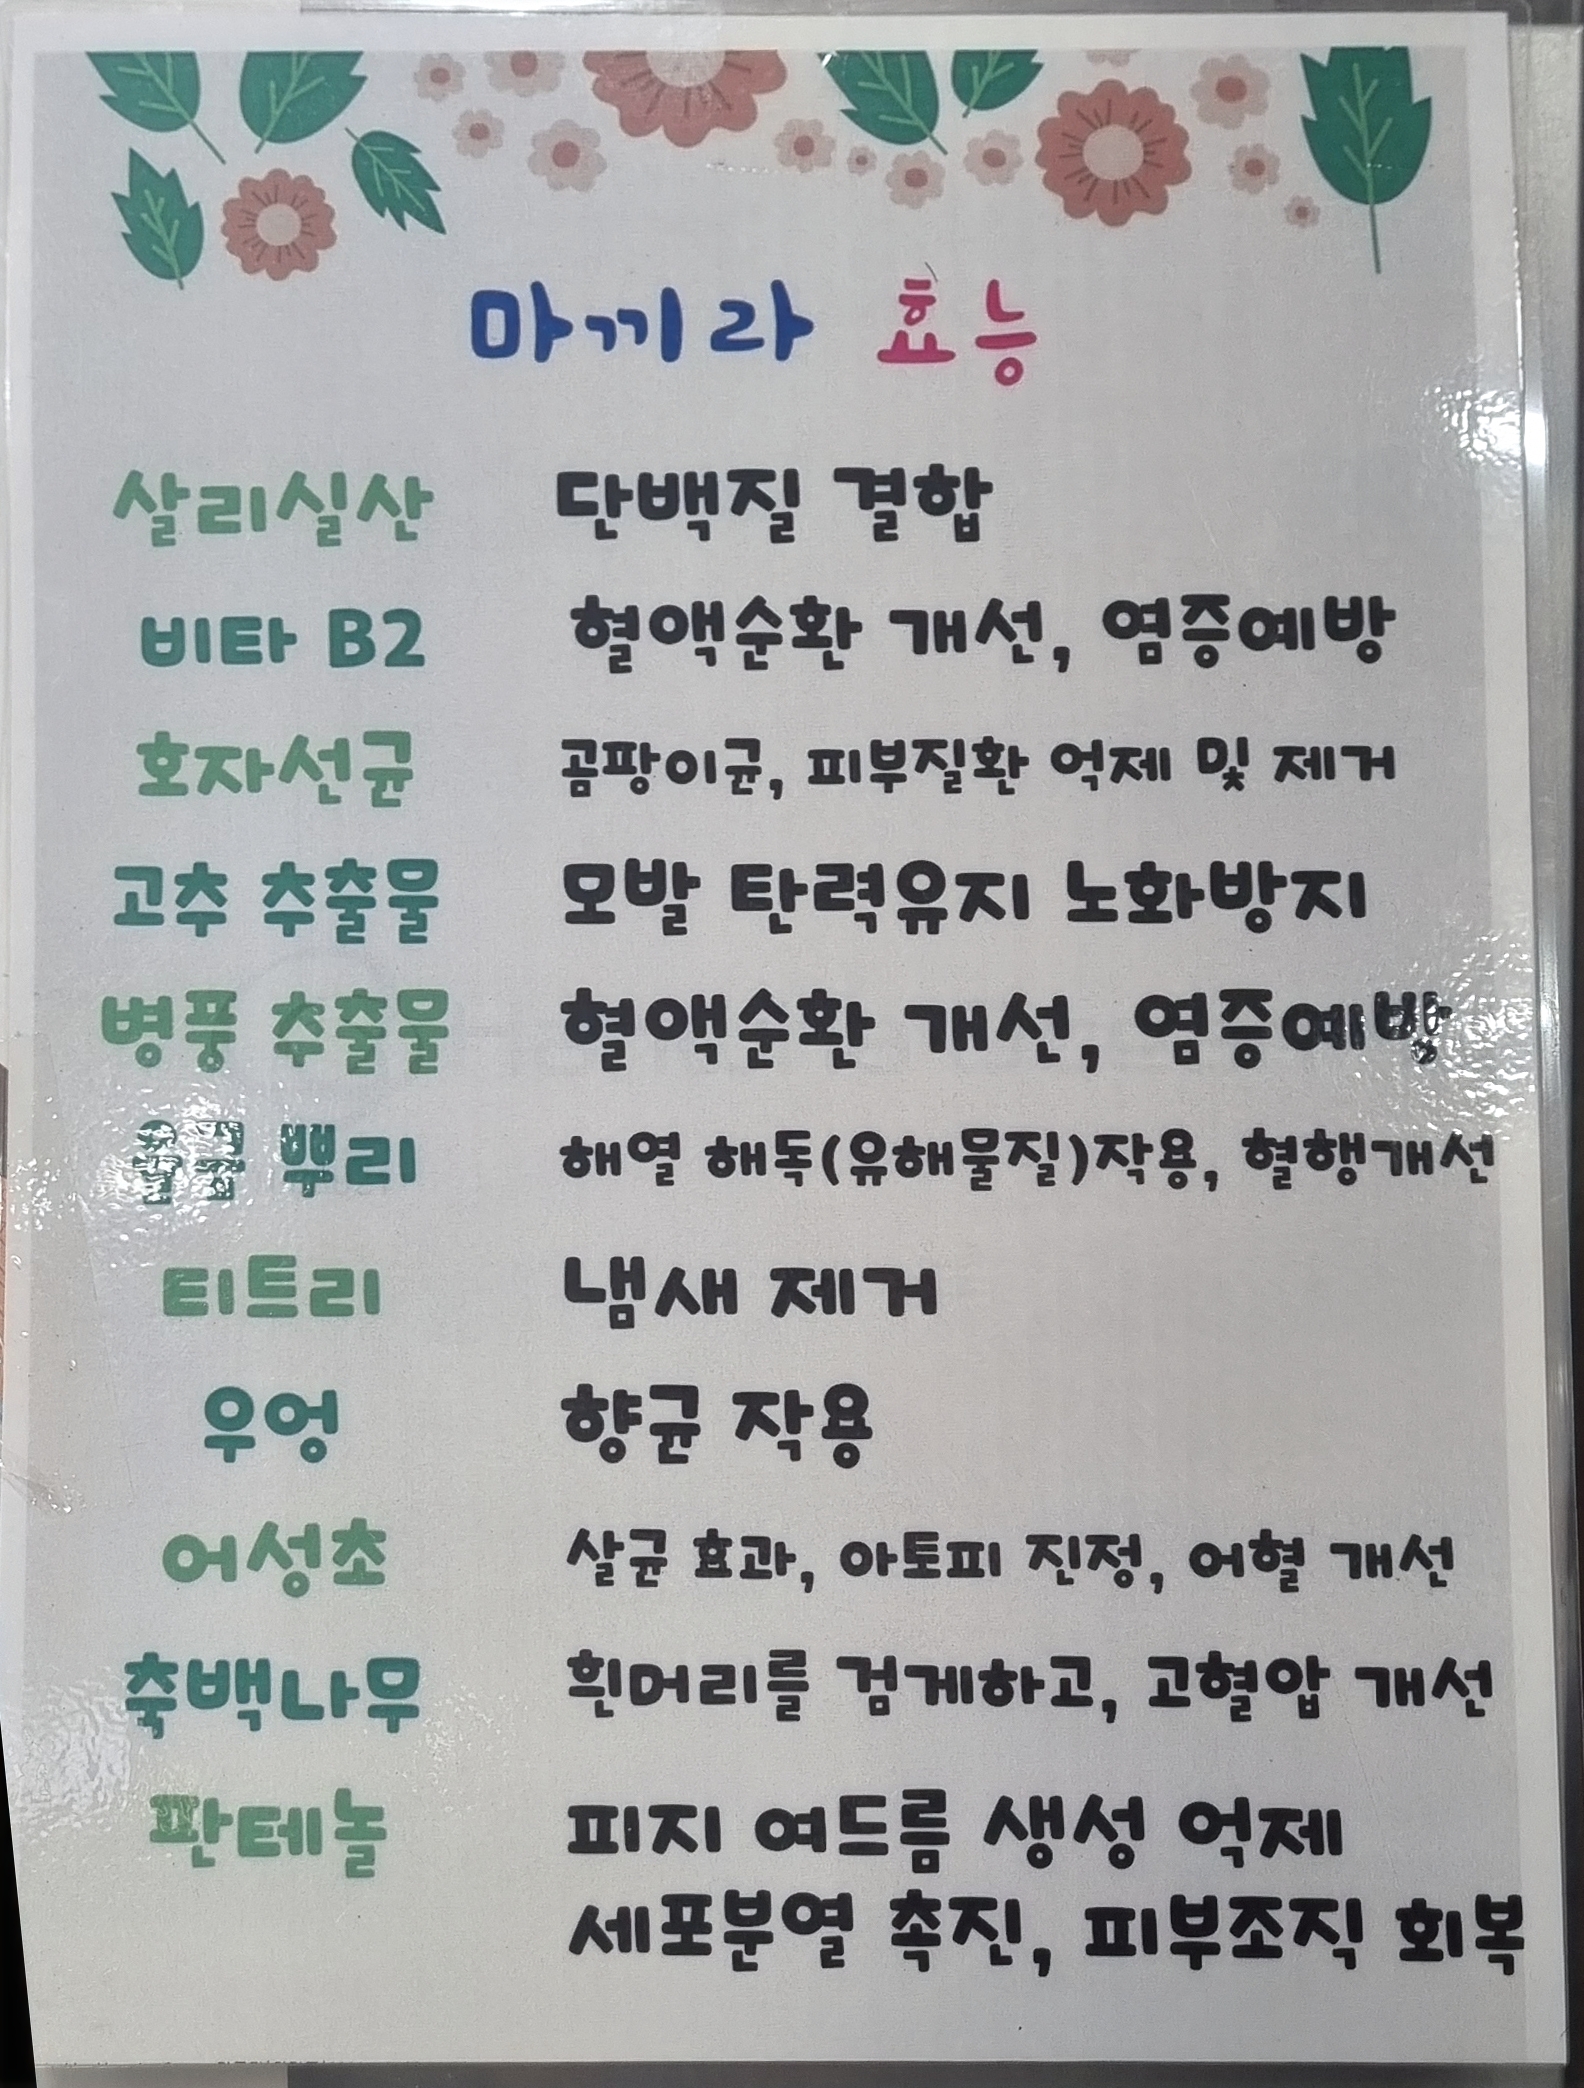 마끼라 효능
살리실산 단백질 결합
비타 B2 혈액순환 개선, 염증예방
호자선균 곰팡이균, 피부질환 억제 및 제거
고추 추출물 모발 탄력유지 노화방지
병풍 추출물 혈액순환 개선, 염증예방
뿌리 해열 해독(유해물질)작용, 혈행개선
티트리 냄새 제거
우엉 향균 작용
어성초 살균 효과, 아토피 진정, 어혈 개선
축백나무 흰머리를 검게하고, 고혈압 개선
판테놀 피지 여드름 생성 억제
세포분열 촉진, 피부조직 회복